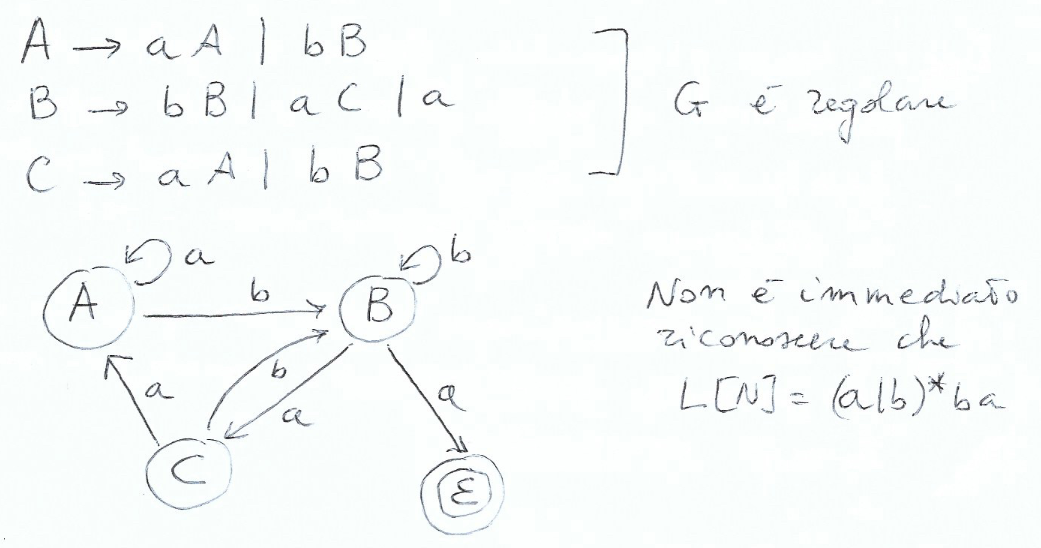 A → a A | b B
B → b B | a C | a
C → a A | b B
G é regolare
A
a
b
B
b
b
a
a
C
a
ε
Non é immediato
riconoscere che
L[N] = (a|b)* b a